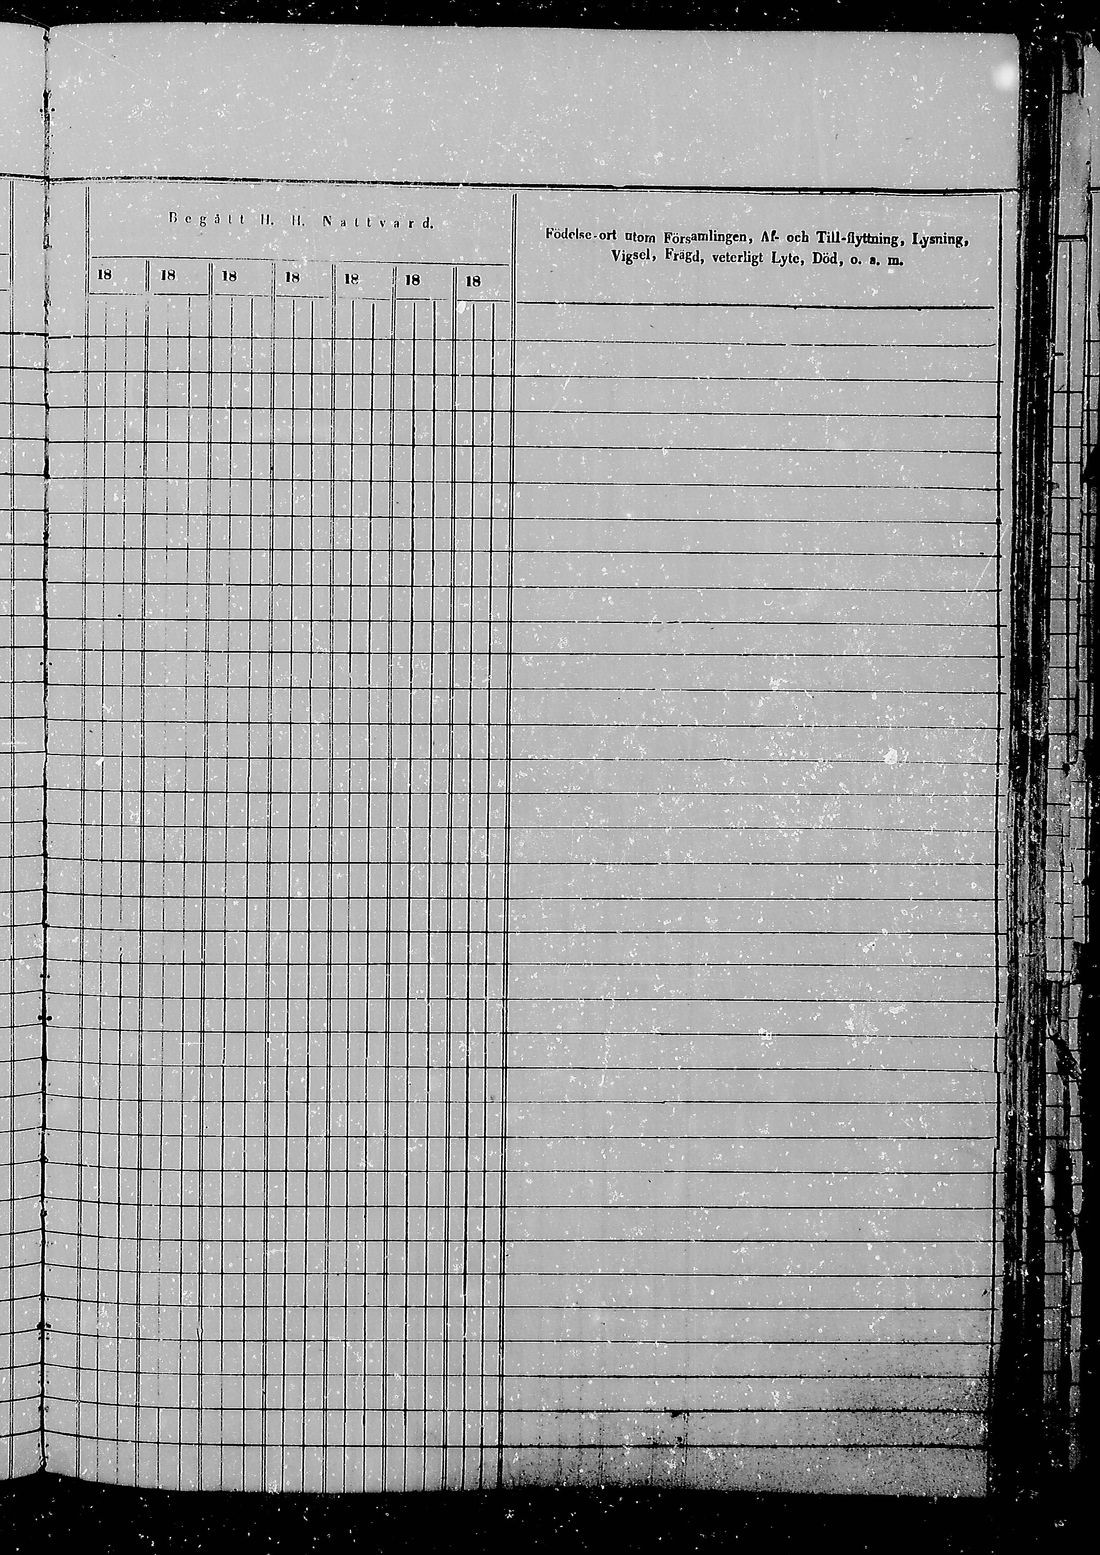 Begått H. H. Nattvard.
Födelse-ort utom Församlingen, Af- och Till-flyttning, Lysning,
Vigsel, Frägd, veterligt Lyte, Död, o. s. m.
18 18 18 18 18 18 18